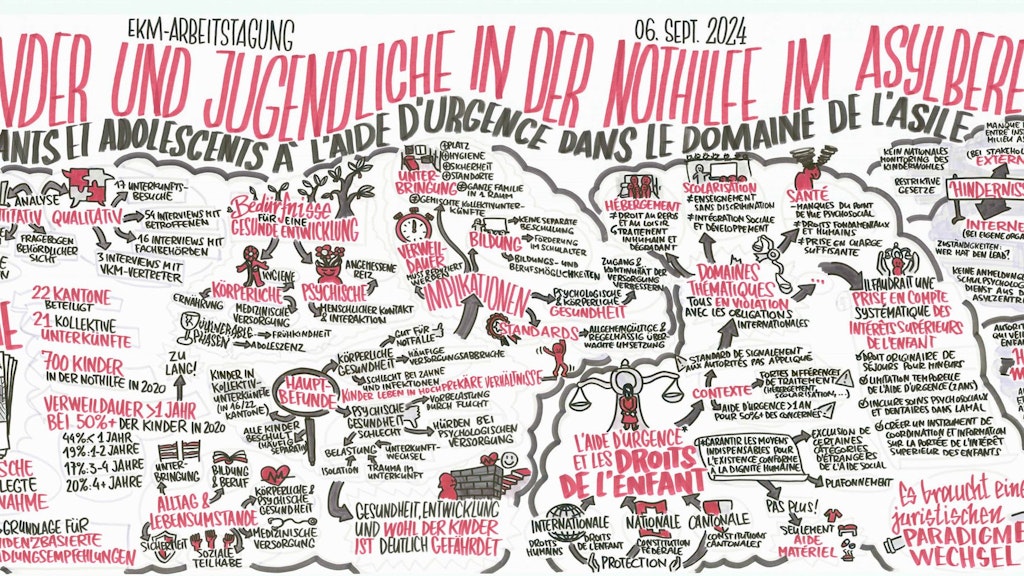 EKM-ARBEITSTAGUNG
06. SEPT. 2024
NDER UND JUGENDLICHE IN DER NOTHILFE IM ASYLBERE
ANTS ET ADOLESCENTS À L'AIDE D'URGENCE DANS LE DOMAINE DE L'ASILE
ANALYSE
QUALITATIV
17 UNTERKUNFTS-
BESUCHE
54 INTERVIEWS MIT
BETROFFENEN
16 INTERVIEWS MIT
FACHBEHÖRDEN
3 INTERVIEWS MIT
VKM-VERTRETER
FRAGEBOGEN
BEHÖRDLICHER
SICHT
22 KANTONE
BETEILIGT
21 KOLLEKTIVE
UNTERKÜNFTE
700 KINDER
IN DER NOTHILFE IN 2020
ZU
LANG!
VERWEILDAUER >1 JAHR
BEI 50%+ DER KINDER IN 2020
44% < 1 JAHR
19% 1-2 JAHRE
17% 3-4 JAHRE
20% 4+ JAHRE
GRUNDLAGE FÜR
IDENZBASIERTE
NDLUNGSEMPFEHLUNGEN
UNTER-
BRINGUNG
BILDUNG
& BERUF
ALLTAG &
LEBENSUMSTÄNDE
KÖRPERLICHE &
PSYCHISCHE
GESUNDHEIT
MEDIZINISCHE
VERSORGUNG
SICHERHEIT
SOZIALE
TEILHABE
Bedürfnisse
FÜR EINE
GESUNDE ENTWICKLUNG
HYGIENE
KÖRPERLICHE
ERNÄHRUNG
MEDIZINISCHE
VERSORGUNG
PSYCHISCHE
ANGEMESSENE
REIZ
MENSCHLICHER KONTAKT
& INTERAKTION
VULNERABLE
PHASEN
FRÜHKINDHEIT
ADOLESZENZ
HAUPT-
BEFUNDE
KINDER IN
KOLLEKTIV-
UNTERKÜNFTE
(IN 16/22
KANTONE)
ALLE KINDER
BESCHULT
(HÄUFIG
SEPARAT)
KÖRPERLICHE
GESUNDHEIT
GUT FÜR
NOTFÄLLE
HÄUFIGE
VERSORGUNGSABBRÜCHE
SCHLECHT BEI ZÄHNE
UND INFEKTIONEN
KINDER LEBEN IN HOCHPREKÄRE VERHÄLTNISSE
PSYCHISCHE
GESUNDHEIT
SCHLECHT
VORBELASTUNG
DURCH FLUCHT
HÜRDEN BEI
PSYCHOLOGISCHEN
VERSORGUNG
BELASTUNG
ISOLATION
UNTERKUNFT-
WECHSEL
TRAUMA IM
UNTERKUNFT
GESUNDHEIT, ENTWICKLUNG
UND WOHL DER KINDER
IST DEUTLICH GEFÄHRDET
UNTER-
BRINGUNG
PLATZ
HYGIENE
SICHERHEIT
STANDORTE
GANZE FAMILIE
IN 1 RAUM
VERWEIL-
DAUER
IMPLIKATIONEN
BILDUNG
KEINE SEPARATE
BESCHULUNG
FÖRDERUNG
IM SCHULALTER
BILDUNGS- UND
BERUFSMÖGLICHKEITEN
PSYCHOLOGISCHE
& KÖRPERLICHE
GESUNDHEIT
ZUGANG &
KONTINUITÄT DER
VERSORGUNG
VERBESSERN
STANDARDS
ALLGEMEINGÜLTIGE &
REGELMÄSSIG ÜBER-
WACHTE UMSETZUNG
HÉBERGEMENT
≠ DROIT AU REPOS
OU LOISIR
TRAITEMENT
INHUMAIN ET
DÉGRADANT
SCOLARISATION
≠ ENSEIGNEMENT
SANS DISCRIMINATION
≠ INTÉGRATION SOCIALE
ET DÉVELOPPEMENT
SANTÉ
MANQUES DU POINT
DE VUE PSYCHOSOCIAL
≠ DROITS FONDAMENTAUX
ET HUMAINS
≠ PRISE EN CHARGE
SUFFISANTE
DOMAINES
THÉMATIQUES
TOUS EN VIOLATION
AVEC LES OBLIGATIONS
INTERNATIONALES
...
IL FAUDRAIT UNE
PRISE EN COMPTE
SYSTÉMATIQUE DES
INTÉRÊTS SUPÉRIEURS
DE L'ENFANT
DROIT ORIGINAIRE DE
SÉJOURS POUR MINEURS
LIMITATION TEMPORELLE
DE L'AIDE D'URGENCE (2 ANS)
INCLURE SOINS PSYCHOSOCIAUX
ET DENTAIRES DANS LAMAL
CRÉER UN INSTRUMENT DE
COORDINATION ET INFORMATION
SUR LA PORTÉE DE L'INTÉRÊT
SUPÉRIEUR DES ENFANTS
CONTEXTE
STANDARD DE SIGNALEMENT
AUX AUTORITÉS PAS APPLIQUÉ
FORTES DIFFÉRENCES
DE TRAITEMENT
(HÉBERGEMENT,
SCOLARISATION,...)
AIDE D'URGENCE >1 AN
POUR 50%+ DES CONCERNÉS
L'AIDE D'URGENCE
ET LES DROITS
DE L'ENFANT
"GARANTIR LES MOYENS
INDISPENSABLES POUR
L'EXISTENCE CONFORME
À LA DIGNITÉ HUMAINE"
EXCLUSION DE
CERTAINES
CATÉGORIES
D'ÉTRANGERS
DE L'AIDE SOCIAL
PLAFONNEMENT
PAS PLUS!
SEULEMENT
AIDE
MATÉRIEL
INTERNATIONALE
DROITS
HUMAINS
DROITS
DE L'ENFANT
NATIONALE
CONSTITUTION
FÉDÉRALE
CANTONALE
CONSTITUTIONS
CANTONALES
PROTECTION
KEIN NATIONALES
MONITORING DES
KINDERWOHLES
RESTRIKTIVE
GESETZE
MANQUE
ENTRE INS
MILIEU AS
(BEI STAKEHOL
EXTERN
HINDERNIS
INTERNE
(BEI EIGENE ORGA
ZUSTÄNDIGKEITEN:
WER HAT DEN LEAD?
KEINE ANMELDUNG
SCHULPSYCHOLOG
DIENST AUS D
ASYLZENTR
Es braucht eine
juristischen
PARADIGME
WECHSEL